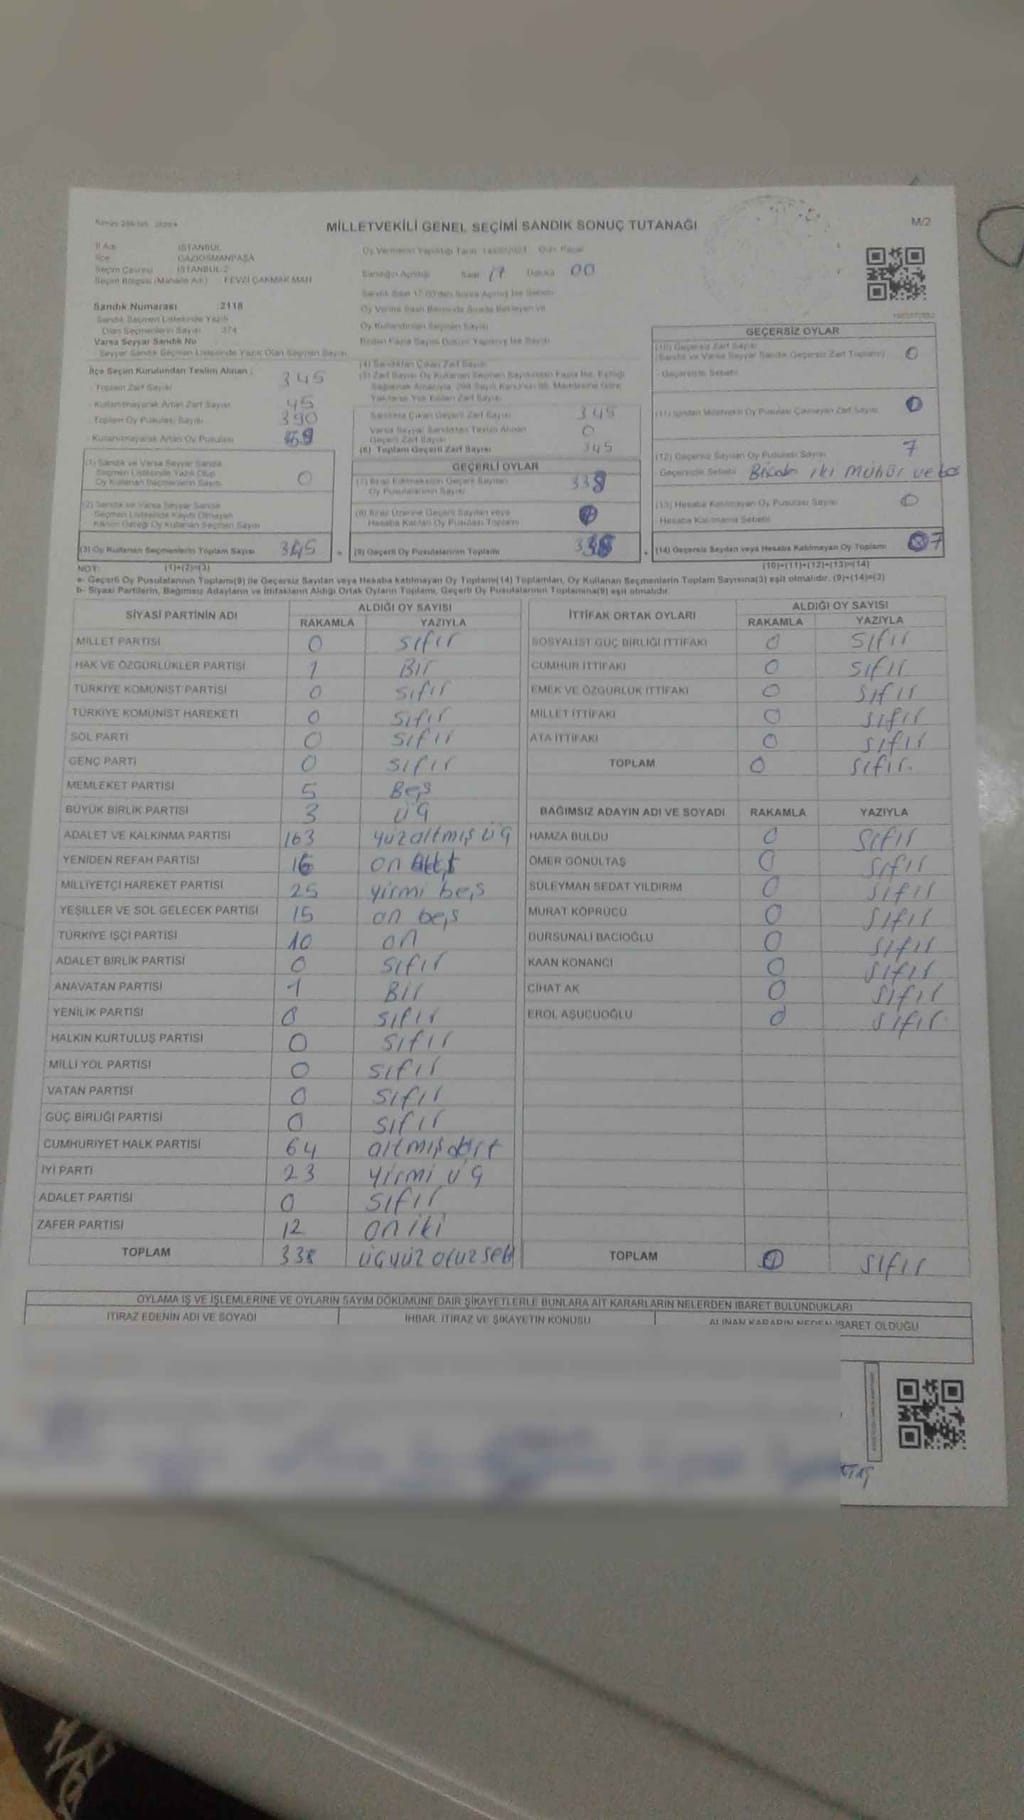 MİLLETVEKİLİ GENEL SEÇİMİ SANDIK SONUÇ TUTANAĞI
M/2
İl Adı : İSTANBUL
İlçe : GAZİOSMANPAŞA
Seçim Çevresi : İSTANBUL-2
Seçim Bölgesi (Mahalle Adı) : FEVZİ ÇAKMAK MAH
Sandık Numarası : 2118
Sandık Seçmen Listesinde Yazılı
Olan Seçmenlerin Sayısı : 374
Varsa Seyyar Sandık No
Seyyar Sandık Seçmen Listesinde Yazılı Olan Seçmen Sayısı
İlçe Seçim Kurulundan Teslim Alınan :
- Toplam Zarf Sayısı 345
- Kullanılmayarak Artan Zarf Sayısı 45
- Toplam Oy Pusulası Sayısı 390
- Kullanılmayarak Artan Oy Pusulası
(1) Sandık ve Varsa Seyyar Sandık
Seçmen Listesinde Yazılı Olup
Oy Kullanan Seçmenlerin Sayısı 0
(2) Sandık ve Varsa Seyyar Sandık
Seçmen Listesinde Kayıtlı Olmayan
Kanun Gereği Oy Kullanan Seçmen Sayısı
(3) Oy Kullanan Seçmenlerin Toplam Sayısı 345
(1)+(2)=(3)
Sandığın Açıldığı Saat 17 Dakika 00
(4) Sandıktan Çıkan Zarf Sayısı
Sandıkta Çıkan Geçerli Zarf Sayısı 345
Varsa Seyyar Sandıktan Teslim Alınan
Geçerli Zarf Sayısı 0
(6) Toplam Geçerli Zarf Sayısı 345
GEÇERLİ OYLAR
(7) İtiraz Edilmeksizin Geçerli Sayılan
Oy Pusulalarının Sayısı 338
(8) İtiraz Üzerine Geçerli Sayılan veya
Hesaba Katılan Oy Pusulası Toplamı
(9) Geçerli Oy Pusulalarının Toplamı 338
GEÇERSİZ OYLAR
(10) Geçersiz Zarf Sayısı
(Sandık ve Varsa Seyyar Sandık Geçersiz Zarf Toplamı) 0
Geçersizlik Sebebi
(11) İçinden Milletvekili Oy Pusulası Çıkmayan Zarf Sayısı 0
(12) Geçersiz Sayılan Oy Pusulası Sayısı 7
Geçersizlik Sebebi iki mühür ve
(13) Hesaba Katılmayan Oy Pusulası Sayısı 0
Hesaba Katılmama Sebebi
(14) Geçersiz Sayılan veya Hesaba Katılmayan Oy Toplamı 7
(10)+(11)+(12)+(13)=(14)
NOT:
a- Geçerli Oy Pusulalarının Toplamı(9) ile Geçersiz Sayılan veya Hesaba katılmayan Oy Toplamı(14) Toplamları, Oy Kullanan Seçmenlerin Toplam Sayısına(3) eşit olmalıdır. (9)+(14)=(3)
b- Siyasi Partilerin, Bağımsız Adayların ve İttifakların Aldığı Ortak Oyların Toplamı, Geçerli Oy Pusulalarının Toplamına(9) eşit olmalıdır.
SİYASİ PARTİNİN ADI ALDIĞI OY SAYISI
RAKAMLA YAZIYLA
MİLLET PARTİSİ 0 sıfır
HAK VE ÖZGÜRLÜKLER PARTİSİ 1 Bir
TÜRKİYE KOMÜNİST PARTİSİ 0 sıfır
TÜRKİYE KOMÜNİST HAREKETİ 0 sıfır
SOL PARTİ 0 sıfır
GENÇ PARTİ 0 sıfır
MEMLEKET PARTİSİ 5 Beş
BÜYÜK BİRLİK PARTİSİ 3 üç
ADALET VE KALKINMA PARTİSİ 163 yüzaltmış üç
YENİDEN REFAH PARTİSİ 16 on altı
MİLLİYETÇİ HAREKET PARTİSİ 25 yirmi beş
YEŞİLLER VE SOL GELECEK PARTİSİ 15 on beş
TÜRKİYE İŞÇİ PARTİSİ 10 on
ADALET BİRLİK PARTİSİ 0 sıfır
ANAVATAN PARTİSİ 1 Bir
YENİLİK PARTİSİ 0 sıfır
HALKIN KURTULUŞ PARTİSİ 0 sıfır
MİLLİ YOL PARTİSİ 0 sıfır
VATAN PARTİSİ 0 sıfır
GÜÇ BİRLİĞİ PARTİSİ 0 sıfır
CUMHURİYET HALK PARTİSİ 64 altmışdört
İYİ PARTİ 23 yirmi üç
ADALET PARTİSİ 0 sıfır
ZAFER PARTİSİ 12 on iki
TOPLAM 338 üçyüz otuz sek
İTTİFAK ORTAK OYLARI ALDIĞI OY SAYISI
RAKAMLA YAZIYLA
SOSYALİST GÜÇ BİRLİĞİ İTTİFAKI 0 sıfır
CUMHUR İTTİFAKI 0 sıfır
EMEK VE ÖZGÜRLÜK İTTİFAKI 0 sıfır
MİLLET İTTİFAKI 0 sıfır
ATA İTTİFAKI 0 sıfır
TOPLAM 0 sıfır.
BAĞIMSIZ ADAYIN ADI VE SOYADI RAKAMLA YAZIYLA
HAMZA BULDU 0 sıfır
ÖMER GÖNÜLTAŞ 0 sıfır
SÜLEYMAN SEDAT YILDIRIM 0 sıfır
MURAT KÖPRÜCÜ 0 sıfır
DURSUNALİ BACIOĞLU 0 sıfır
KAAN KONANCI 0 sıfır
CİHAT AK 0 sıfır
EROL AŞUCUOĞLU 0 sıfır.
TOPLAM 0 sıfır
OYLAMA İŞ VE İŞLEMLERİNE VE OYLARIN SAYIM DÖKÜMÜNE DAİR ŞİKAYETLERLE BUNLARA AİT KARARLARIN NELERDEN İBARET BULUNDUKLARI
İTİRAZ EDENİN ADI VE SOYADI İHBAR, İTİRAZ VE ŞİKAYETİN KONUSU ALINAN KARARIN NEDEN İBARET OLDUĞU